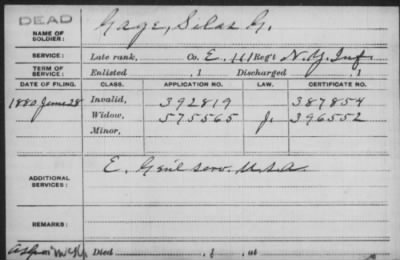 DEAD
NAME OF SOLDIER: Gage, Silas G.
SERVICE: Late rank, Co. E, 161 Reg't N.Y. Inf.
TERM OF SERVICE: Enlisted , 1 Discharged , 1
DATE OF FILING. CLASS. APPLICATION NO. LAW. CERTIFICATE NO.
1880 June 28 Invalid, 392819 387854
Widow, 575565 J. 396552
Minor,
ADDITIONAL SERVICES: E. Gen'l serv. U.S.A.
REMARKS:
Died , 1 , at